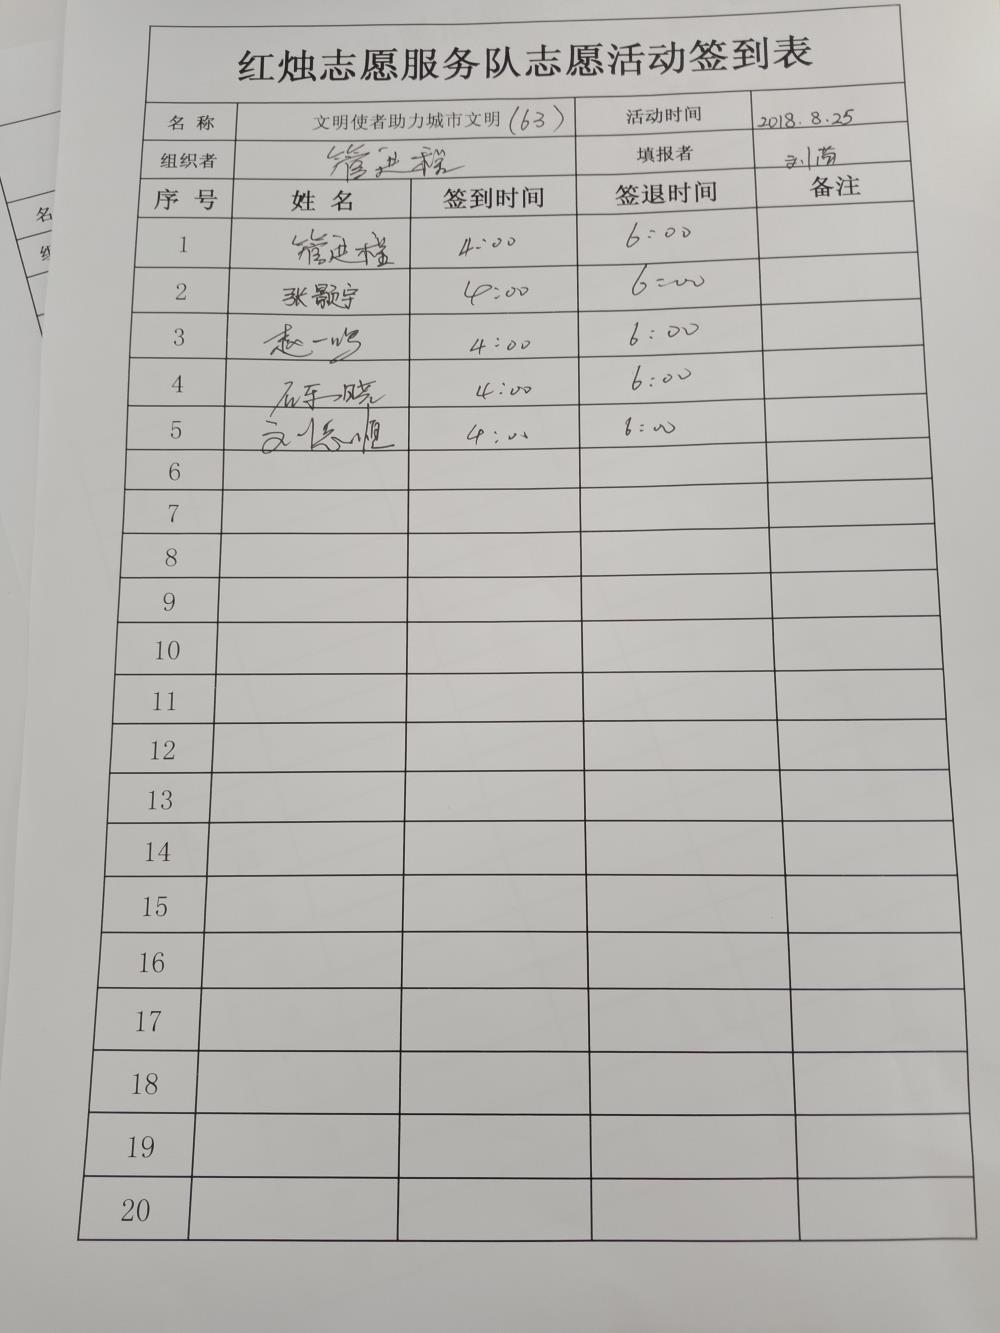 红烛志愿服务队志愿活动签到表
名 称 文明使者助力城市文明(63) 活动时间 2018.8.25
组织者 管进程 填报者
序 号 姓 名 签到时间 签退时间 备注
1 管进程 4:00 6:00
2 张颢宇 4:00 6:00
3 赵一鸣 4:00 6:00
4 石东晓 4:00 6:00
5 4:00 6:00
6
7
8
9
10
11
12
13
14
15
16
17
18
19
20
名